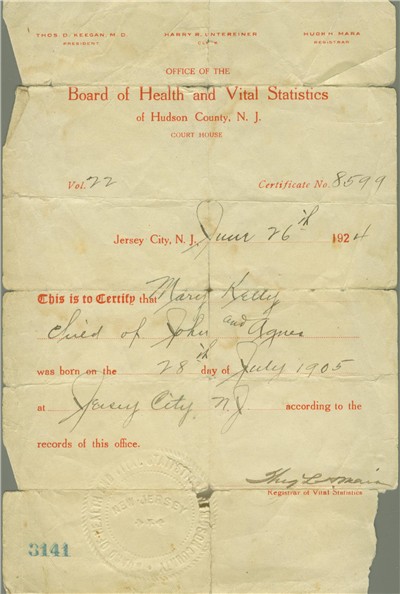 THOS. D. KEEGAN, M.D. HARRY R. UNTEREINER HUGH H. MARA
PRESIDENT CLERK REGISTRAR
OFFICE OF THE
Board of Health and Vital Statistics
of Hudson County, N. J.
COURT HOUSE
Vol. 22 Certificate No. 8599
Jersey City, N. J. June 26th 1924
This is to Certify that Mary Kelly
Child of John and Agnes
was born on the 28th day of July 1905
at Jersey City, NJ according to the
records of this office.
Hugh H Mara
Registrar of Vital Statistics
NEW JERSEY
3141